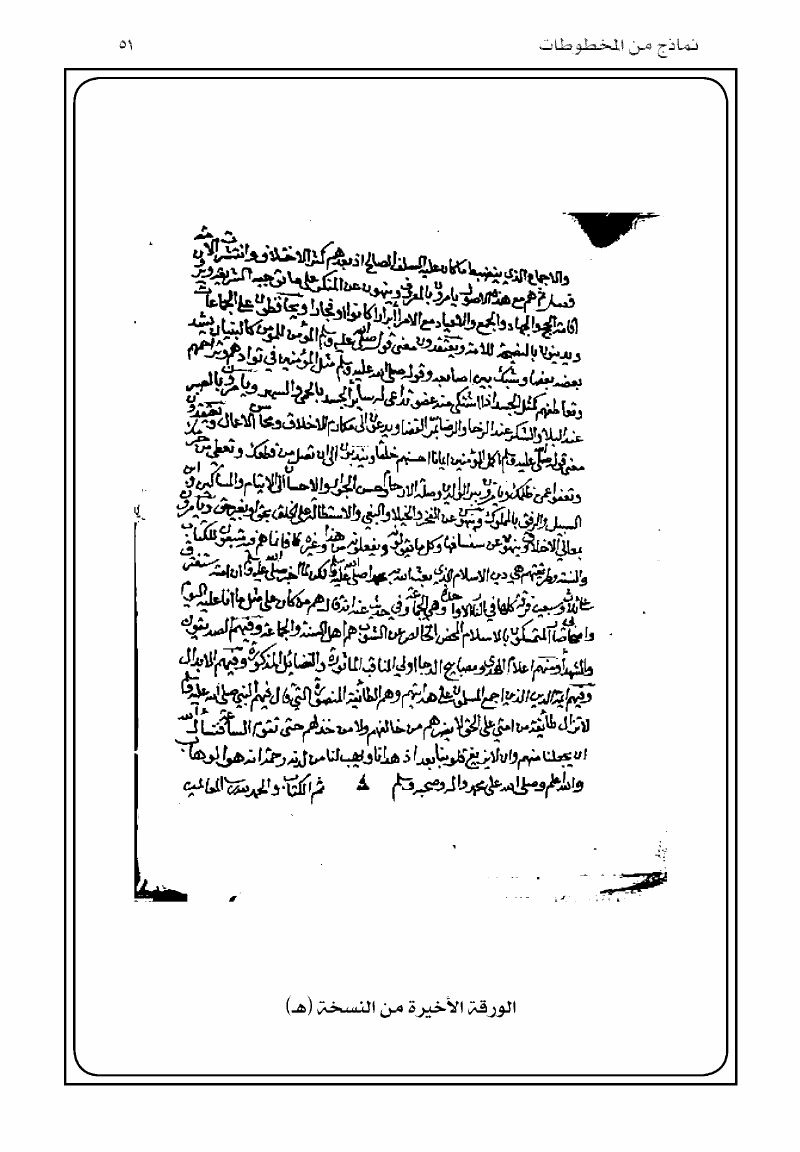 نماذج من المخطوطات
٥١
والاجماع الذي ينضبط ما كان عليه السلف الصالح اذ بعدهم كثر الاختلاف وانتشر الامة
فصل ثم هم مع هذه الاصول يامرون بالمعروف وينهون عن المنكر على ما توجبه الشريعة ويرون
اقامة الحج والجهاد والجمع والاعياد مع الامراء ابرارا كانوا او فجارا ويحافظون على الجماعات
ويدينون بالنصيحة للامة ويعتقدون معنى قوله صلى الله عليه وسلم المؤمن للمؤمن كالبنيان يشد
بعضه بعضا وشبك بين اصابعه وقوله صلى الله عليه وسلم مثل المؤمنين في توادهم وتراحمهم
وتعاطفهم كمثل الجسد اذا اشتكى منه عضو تداعى له سائر الجسد بالحمى والسهر ويامرون بالصبر
عند البلاء والشكر عند الرخاء والرضا بمر القضاء ويدعون الى مكارم الاخلاق ومحاسن الاعمال ويعتقدون
معنى قوله صلى الله عليه وسلم اكمل المؤمنين ايمانا احسنهم خلقا ويندبون الى ان تصل من قطعك وتعطي من حرمك
وتعفو عمن ظلمك ويامرون ببر الوالدين وصلة الارحام وحسن الجوار والاحسان الى الايتام والمساكين وابن
السبيل والرفق بالمملوك وينهون عن الفخر والخيلاء والبغي والاستطالة على الخلق بحق او بغير حق ويامرون
بمعالي الاخلاق وينهون عن سفسافها وكل ما يقولونه ويفعلونه من هذا وغيره فانما هم فيه متبعون للكتاب
والسنة وطريقتهم هي دين الاسلام الذي بعث الله به محمدا صلى الله عليه وسلم لكن لما اخبر صلى الله عليه وسلم ان امته ستفترق
على ثلاث وسبعين فرقة كلها في النار الا واحدة وهي الجماعة وفي حديث عنه انه قال هم من كان على مثل ما انا عليه اليوم
واصحابي صار المتمسكون بالاسلام المحض الخالص عن الشوب هم اهل السنة والجماعة وفيهم الصديقون
والشهداء ومنهم اعلام الهدى ومصابيح الدجا اولي المناقب الماثورة والفضائل المذكورة وفيهم الابدال
وفيهم ايمة الدين الذين اجمع المسلمون على هدايتهم وهم الطائفة المنصورة التي قال فيهم النبي صلى الله عليه وسلم
لا تزال طائفة من امتي على الحق لا يضرهم من خالفهم ولا من خذلهم حتى تقوم الساعة فنسأل الله
ان يجعلنا منهم وان لا يزيغ قلوبنا بعد اذ هدانا ويهب لنا من لدنه رحمة انه هو الوهاب
والله اعلم وصلى الله على محمد واله وصحبه وسلم تم الكتاب والحمد لله رب العالمين
الورقة الأخيرة من النسخة (هـ)